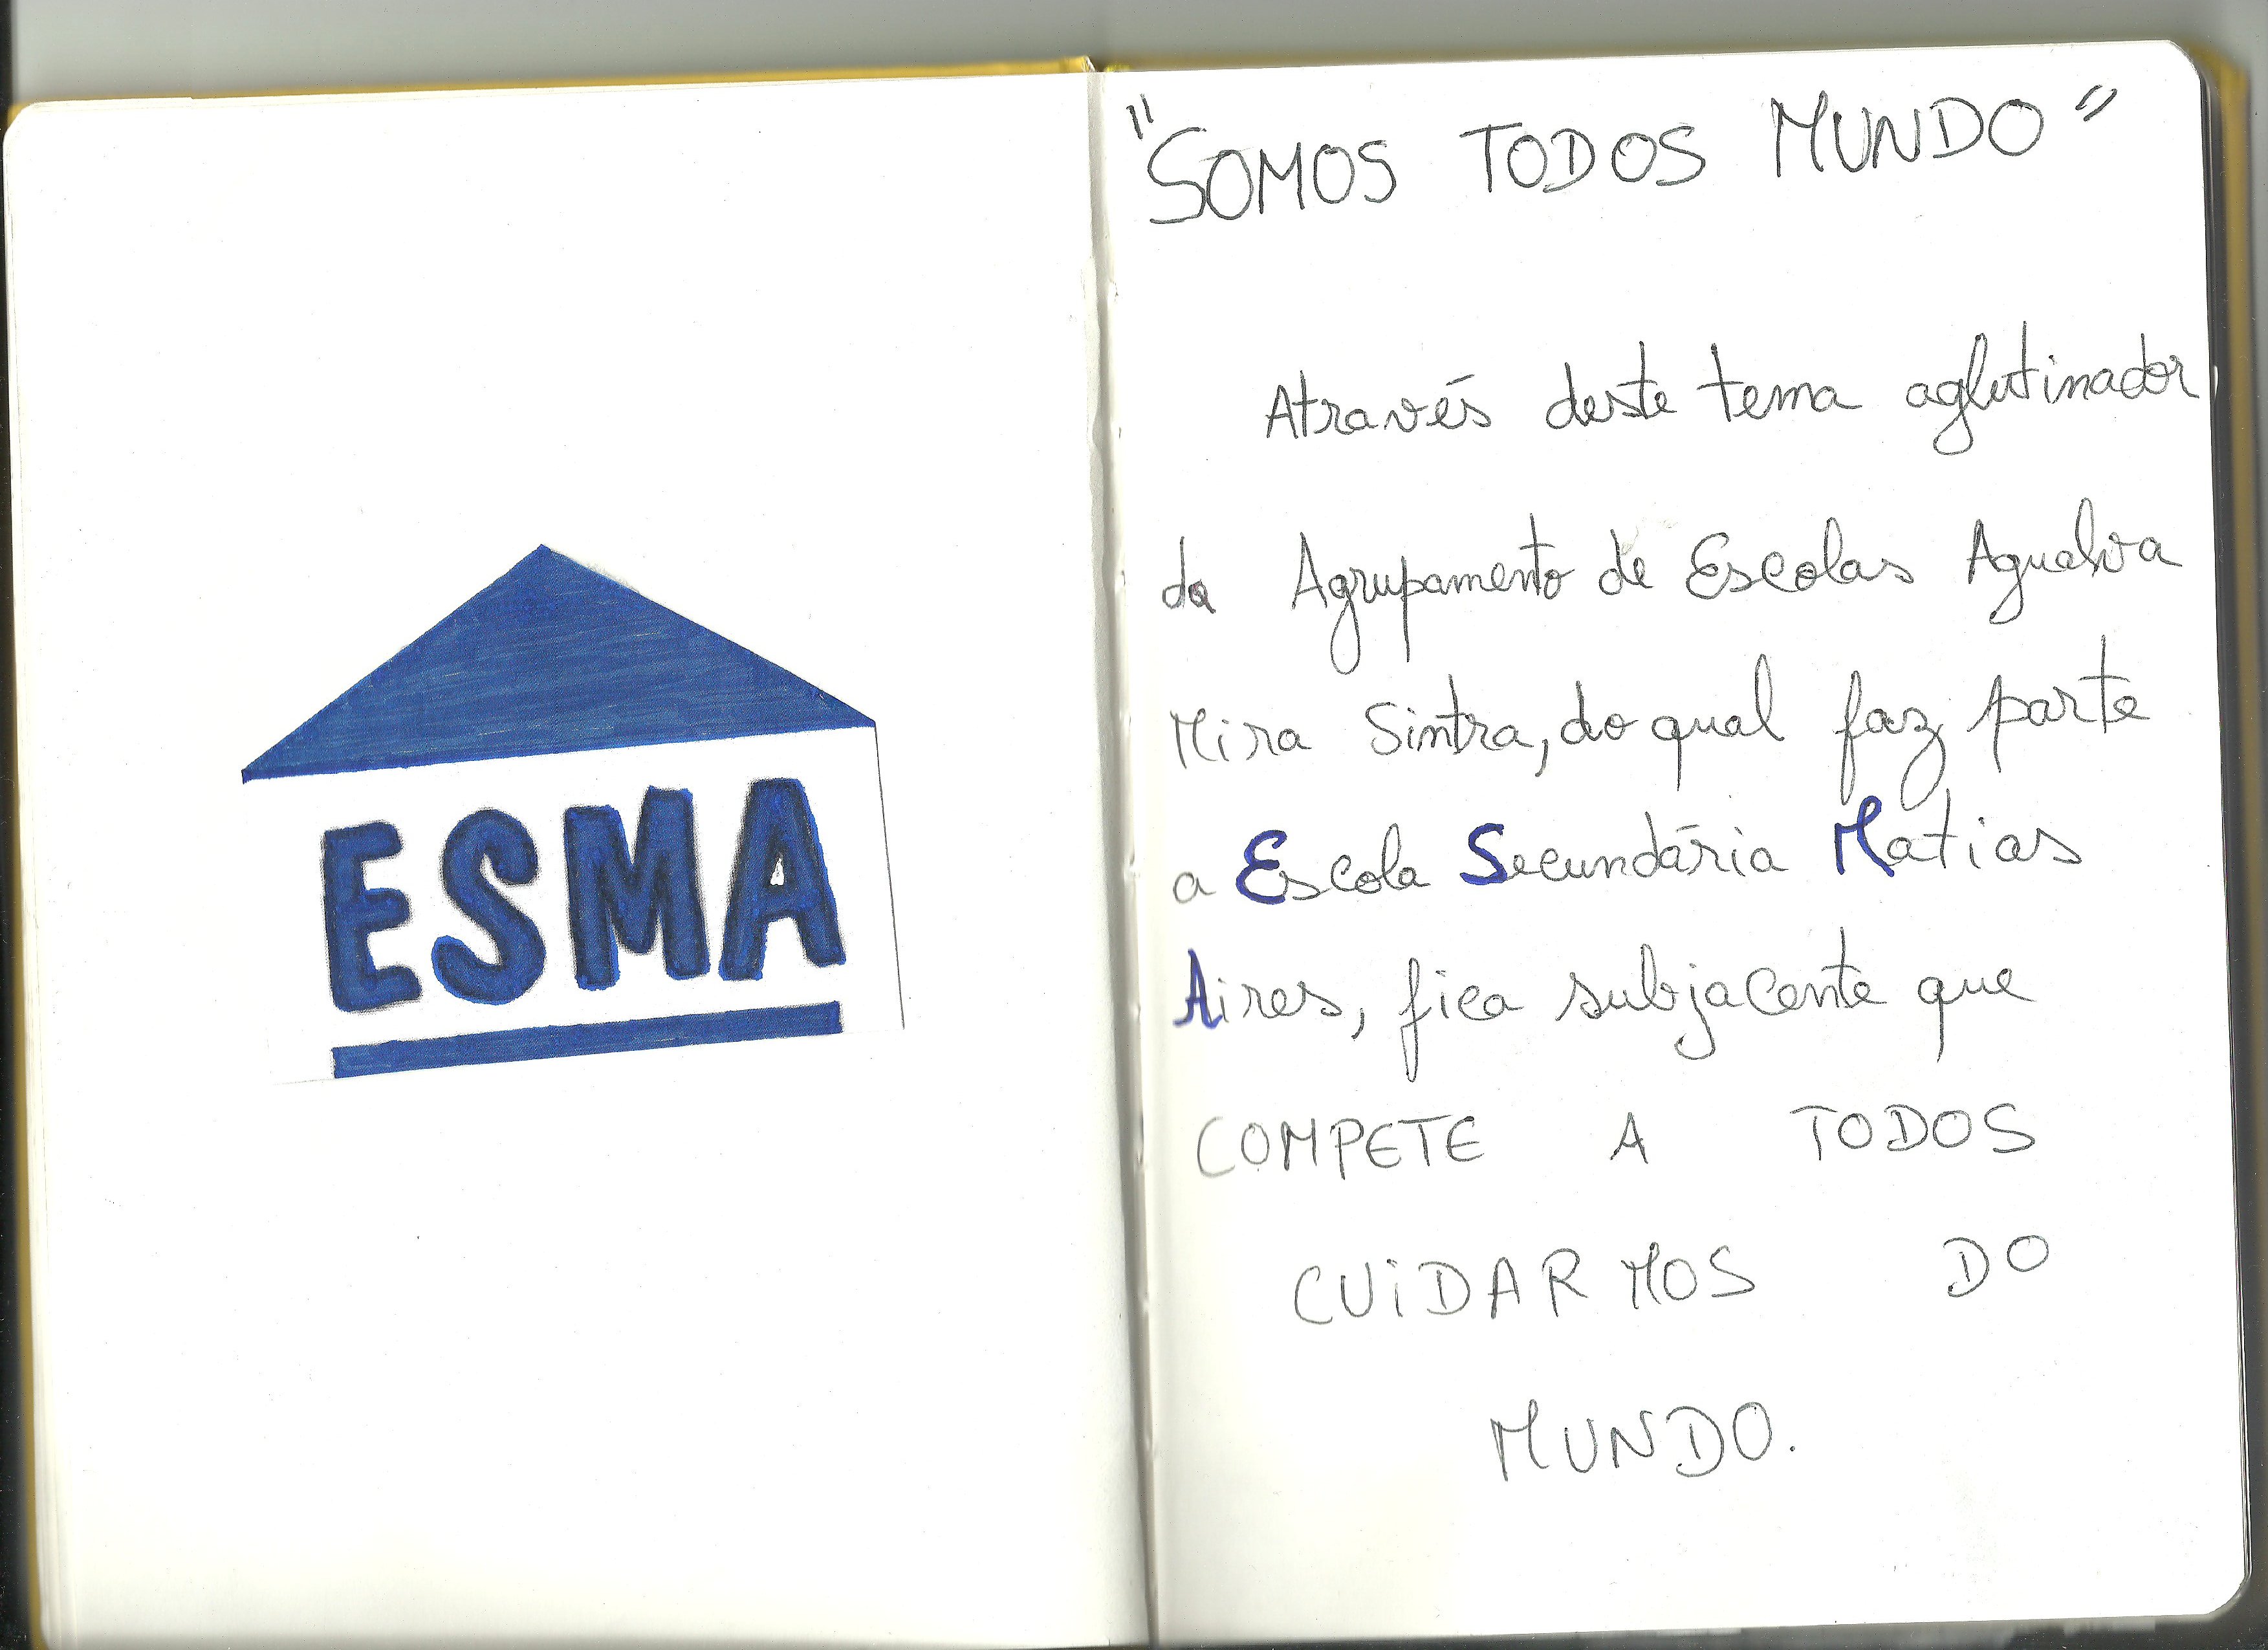 ESMA
"SOMOS TODOS MUNDO"
Através deste tema aglutinador,
do Agrupamento de Escolas Agualva
Mira Sintra, do qual faz parte
a Escola Secundária Matias
Aires, fica subjacente que
COMPETE A TODOS
CUIDARMOS DO
MUNDO.